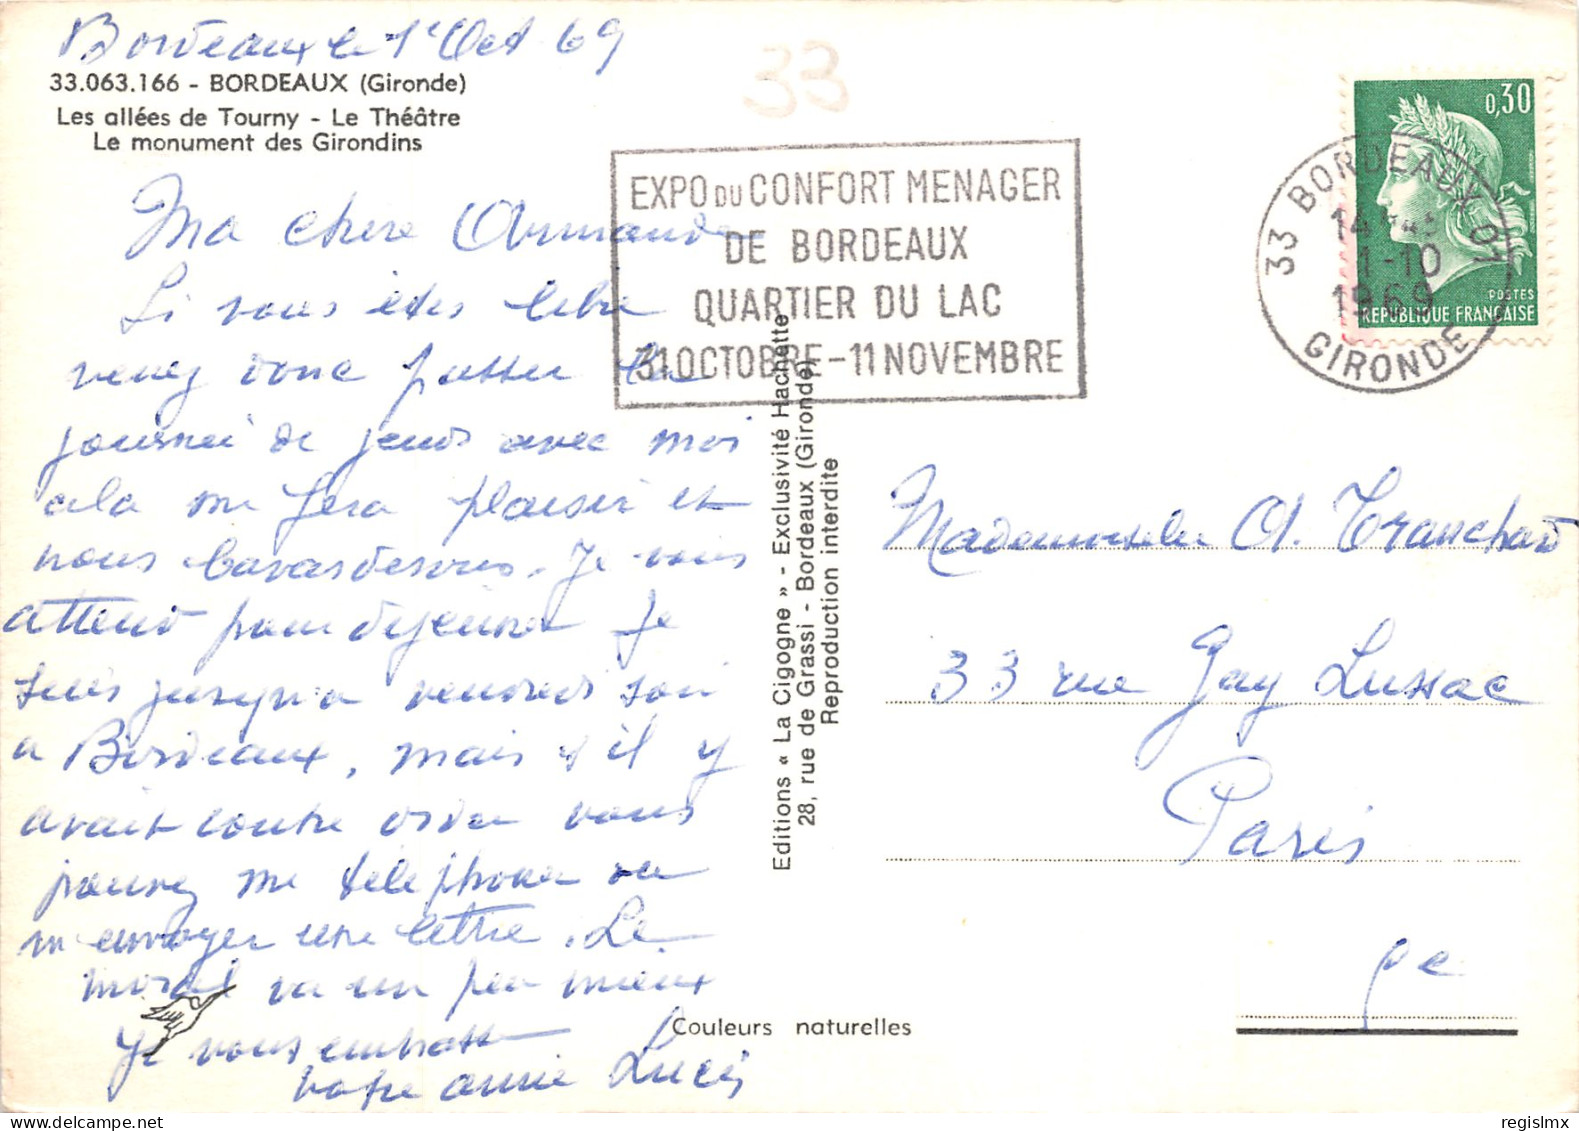 Bordeaux le 1e Oct 69
33.063.166 - BORDEAUX (Gironde)
Les allées de Tourny - Le Théâtre
Le monument des Girondins
33
EXPO DU CONFORT MENAGER
DE BORDEAUX
QUARTIER DU LAC
31 OCTOBRE - 11 NOVEMBRE
0,30
POSTES
REPUBLIQUE FRANÇAISE
33 BORDEAUX 01
1-10
1969
GIRONDE
Ma chère Armande
Si vous êtes libre
venez donc passer la
journée de jeudi avec moi
cela me fera plaisir et
nous bavarderons. Je vous
attend pour dejeuner Je
suis jusqu'a vendredi soir
a Bordeaux, mais s'il y
avait contre ordre vous
pouvez me téléphoner ou
m'envoyer une lettre. Le
moral va un peu mieux
Je vous embrasse
votre amie Lucie
Editions « La Cigogne » - Exclusivité Hachette
28, rue de Grassi - Bordeaux (Gironde)
Reproduction interdite
Couleurs naturelles
Mademoiselle A. Tranchard
33 rue Gay Lussac
Paris
5e
regislmx